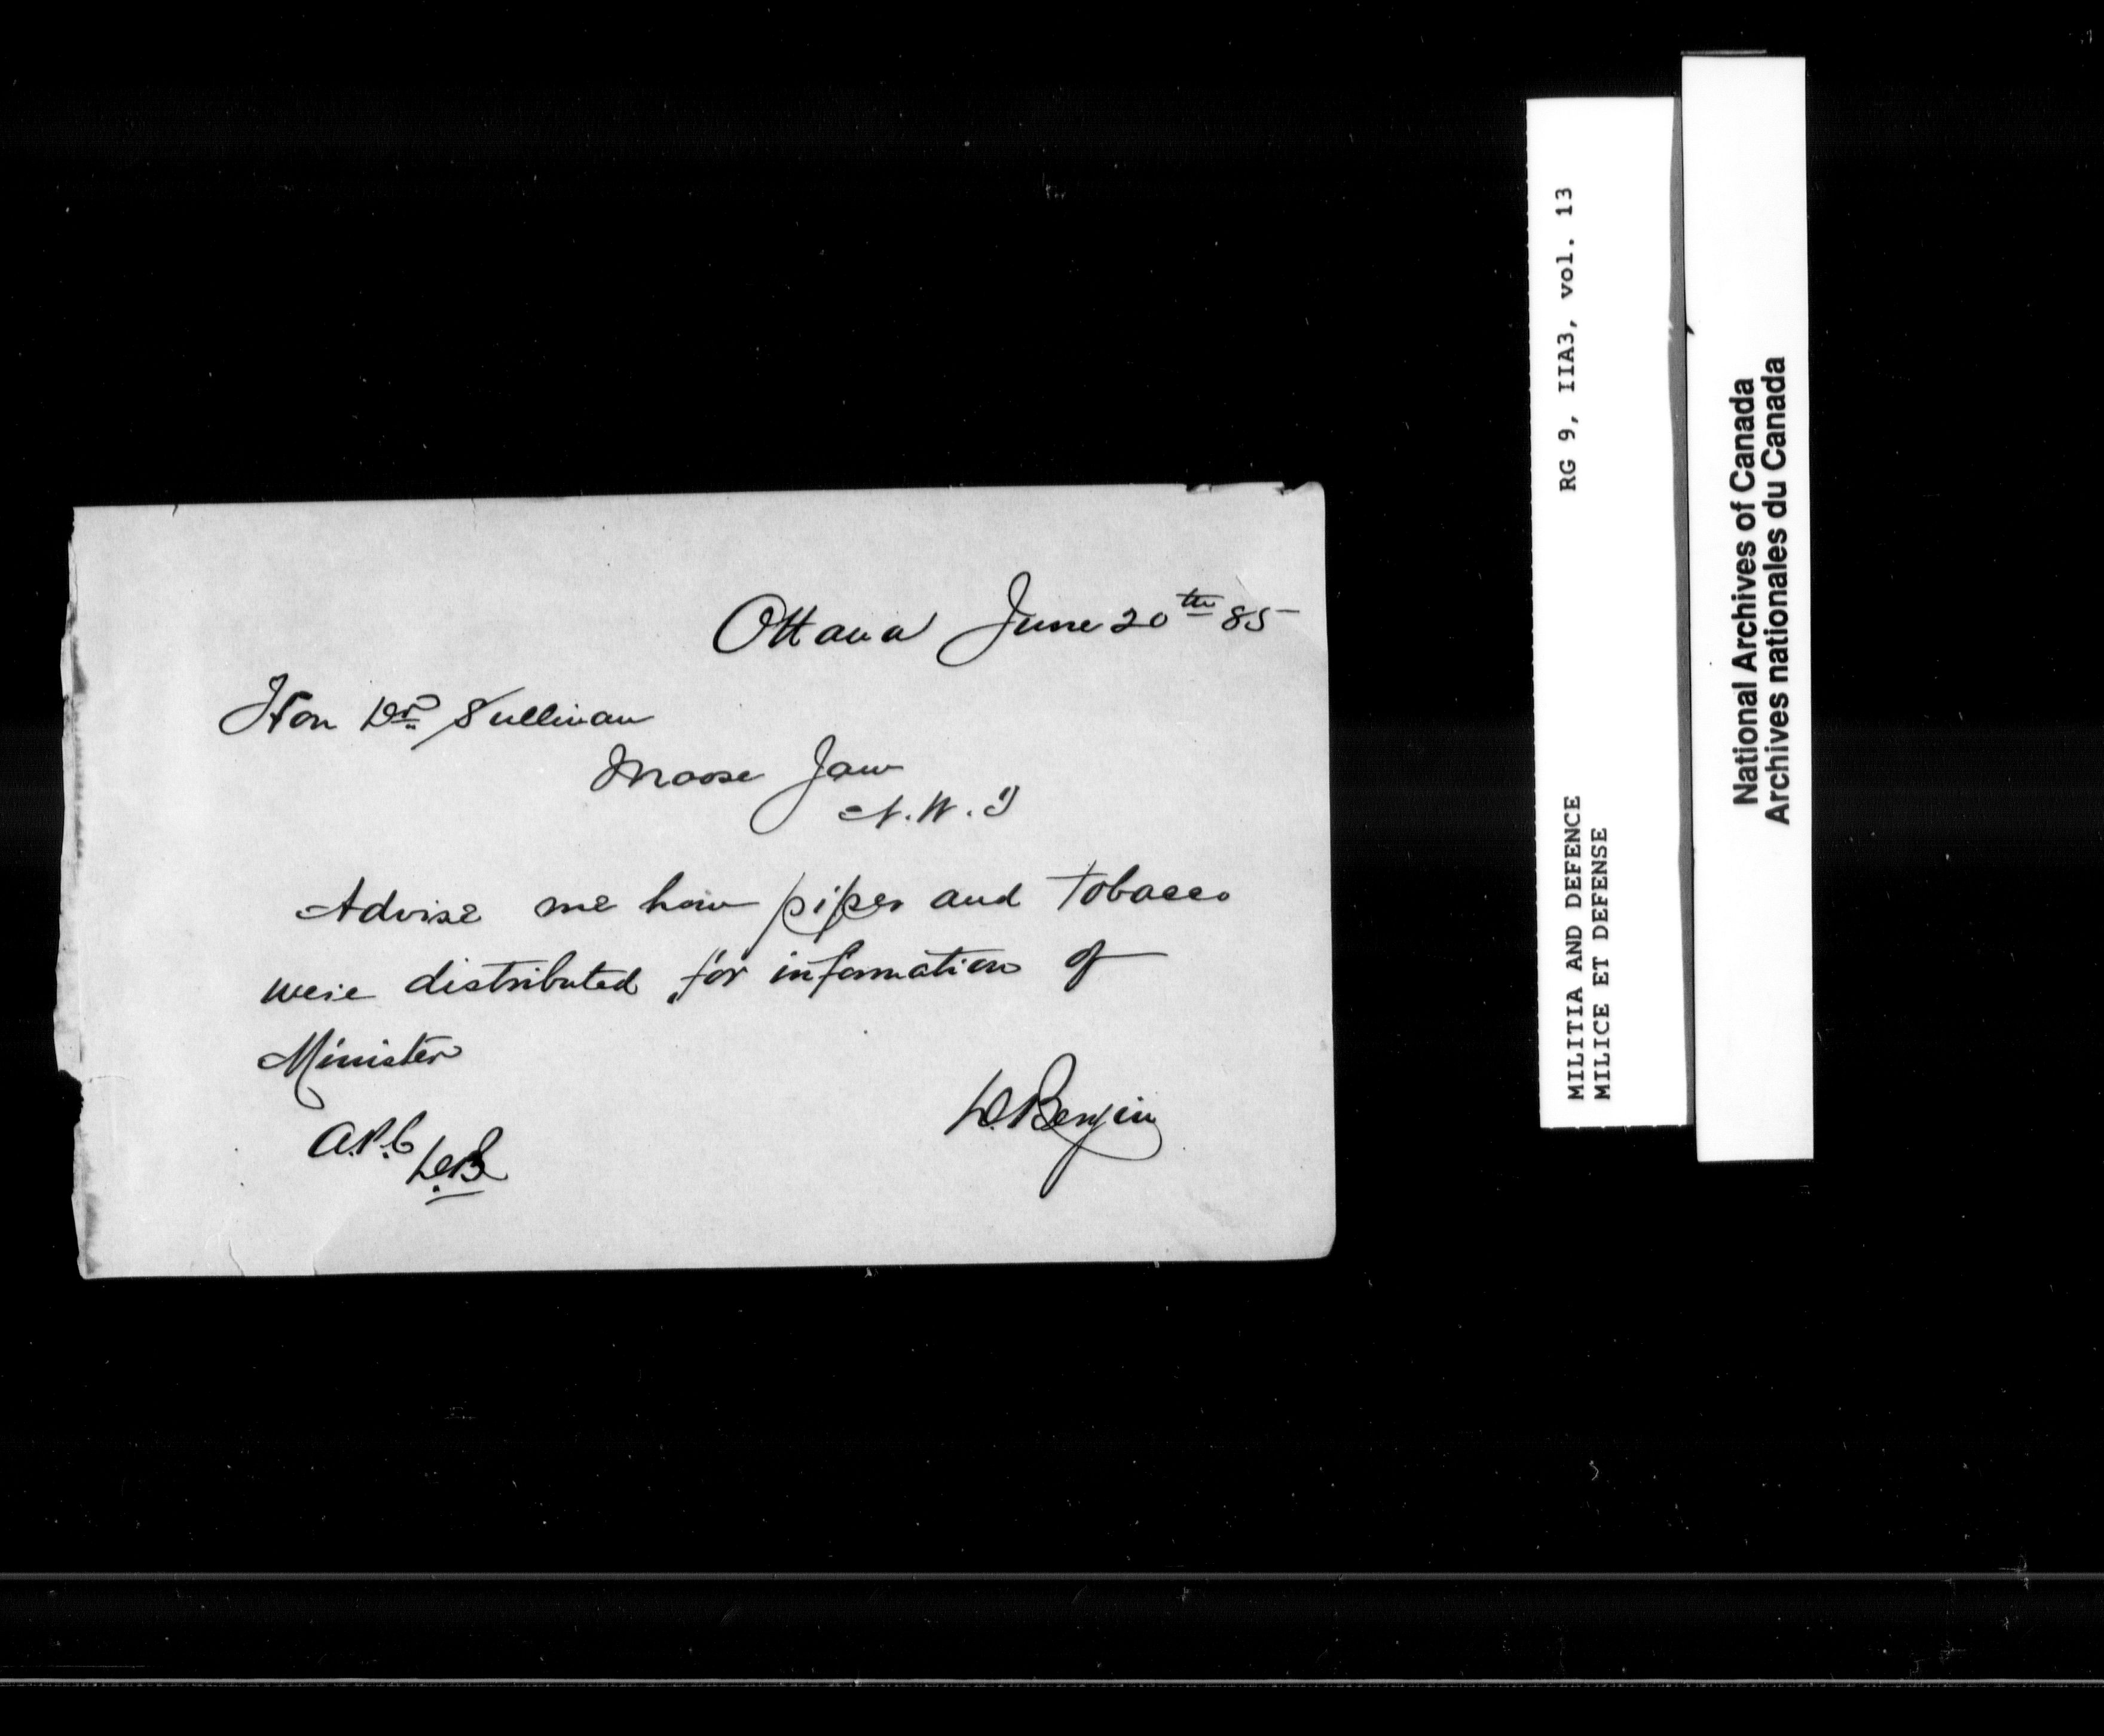 Ottawa June 20th 85
Hon Dr Sullivan
Moose Jaw
N.W.T
Advise me how pipes and tobacco
were distributed for information of
Minister
D. Bergin
D.B
RG 9, IIA3, vol. 13
MILITIA AND DEFENCE
MILICE ET DEFENSE
National Archives of Canada
Archives nationales du Canada